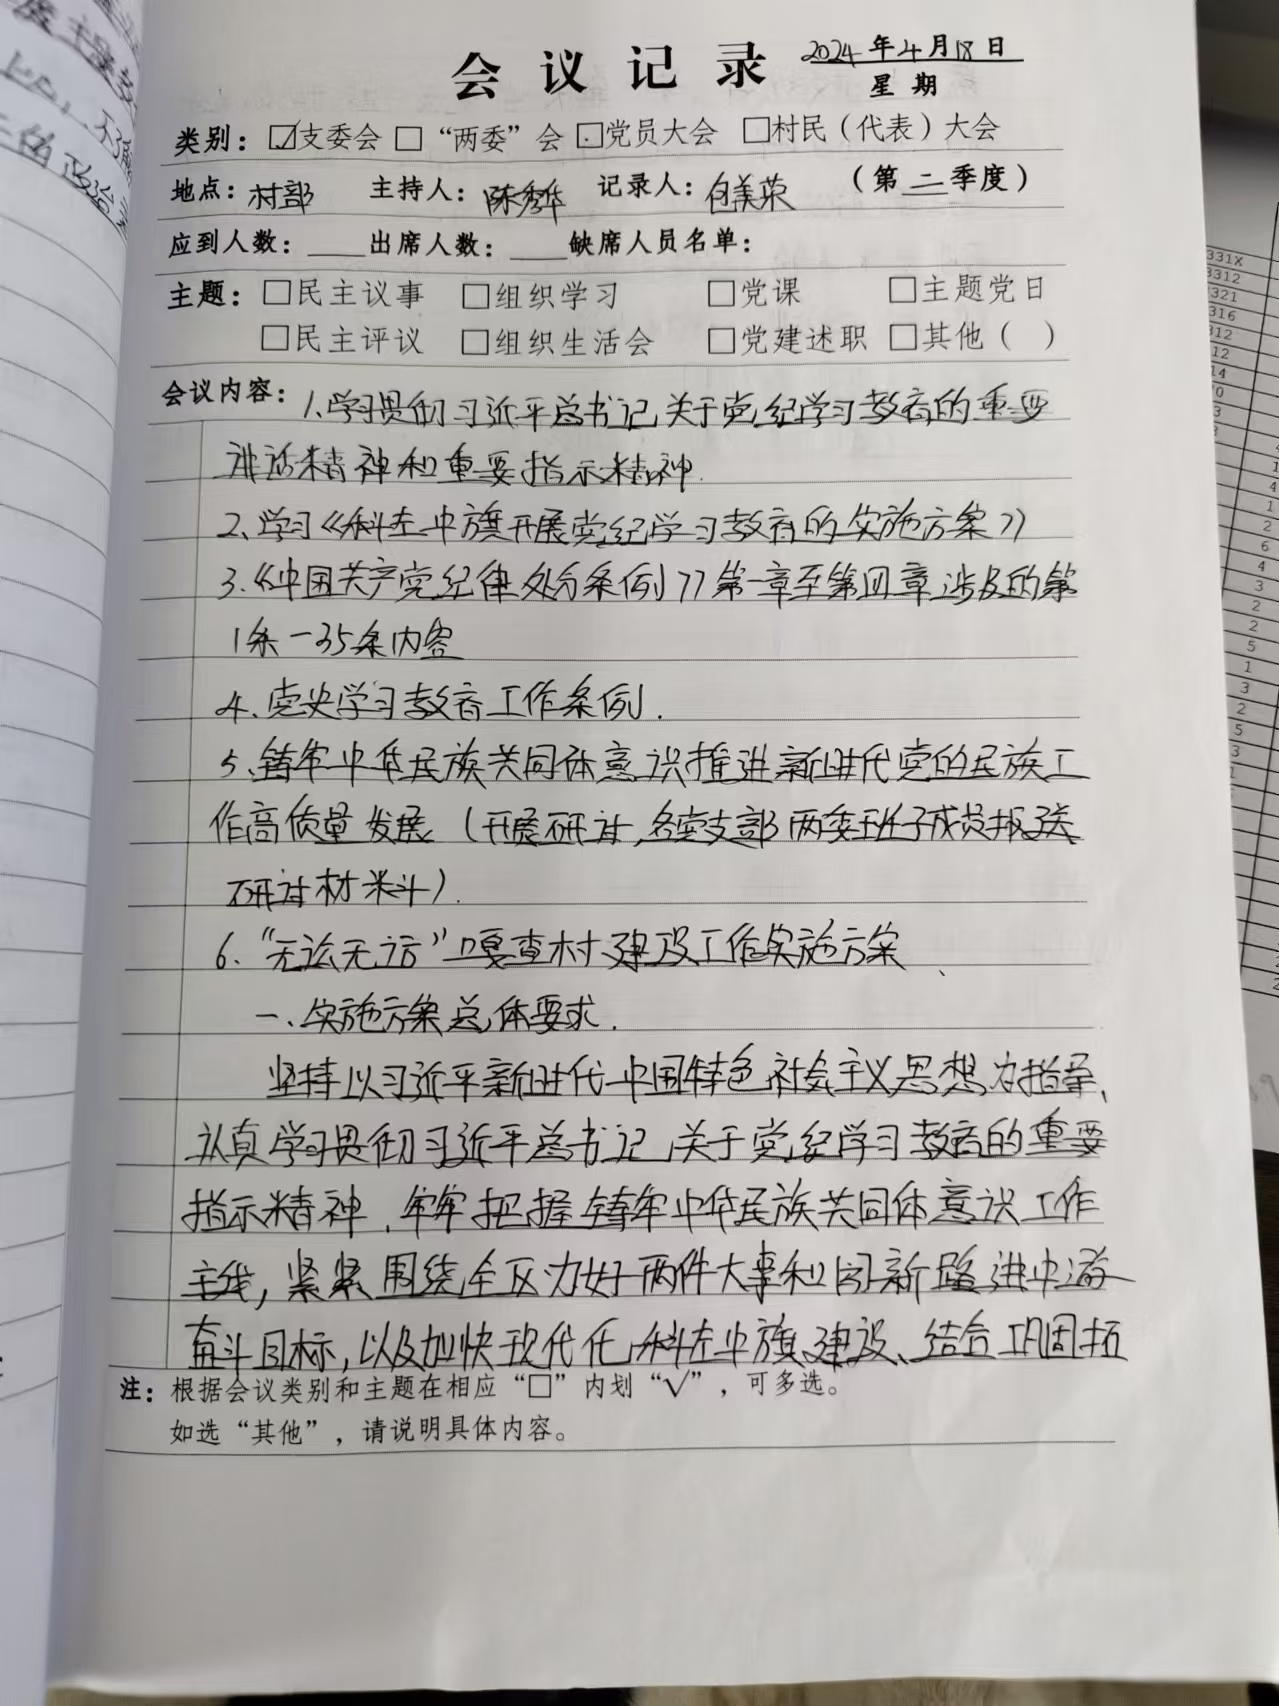 会议记录 2024年4月18日
星期
类别：☑支委会 □“两委”会 □党员大会 □村民（代表）大会
地点：村部 主持人：陈秀华 记录人：包美荣 （第二季度）
应到人数：____出席人数：____缺席人员名单：
主题：□民主议事 □组织学习 □党课 □主题党日
□民主评议 □组织生活会 □党建述职 □其他（ ）
会议内容：1、学习贯彻习近平总书记关于党纪学习教育的重要
讲话精神和重要指示精神.
2、学习《科左中旗开展党纪学习教育的实施方案》
3.《中国共产党纪律处分条例》第一章至第四章涉及的第
1条-35条内容
4、党史学习教育工作条例.
5、铸牢中华民族共同体意识推进新时代党的民族工
作高质量发展（开展研讨,各党支部两委班子成员报送
研讨材料）.
6、“无讼无访”嘎查村建设工作实施方案
一、实施方案总体要求.
坚持以习近平新时代中国特色社会主义思想为指导、
认真学习贯彻习近平总书记关于党纪学习教育的重要
指示精神，牢牢把握铸牢中华民族共同体意识工作
主线，紧紧围绕全区办好两件大事和闯新路进中游
奋斗目标，以及加快现代化科左中旗建设、结合巩固拓
注：根据会议类别和主题在相应“□”内划“√”，可多选。
如选“其他”，请说明具体内容。